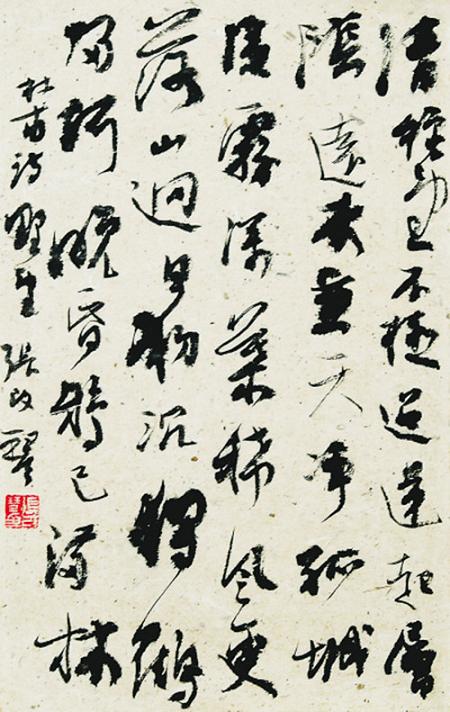 清秋望不極迢遞起層
陰遠水兼天净孤城
隱霧深葉稀風更
落山迥日初沉獨鶴
歸何晚昏鴉已滿林
杜甫詩野望張改琴